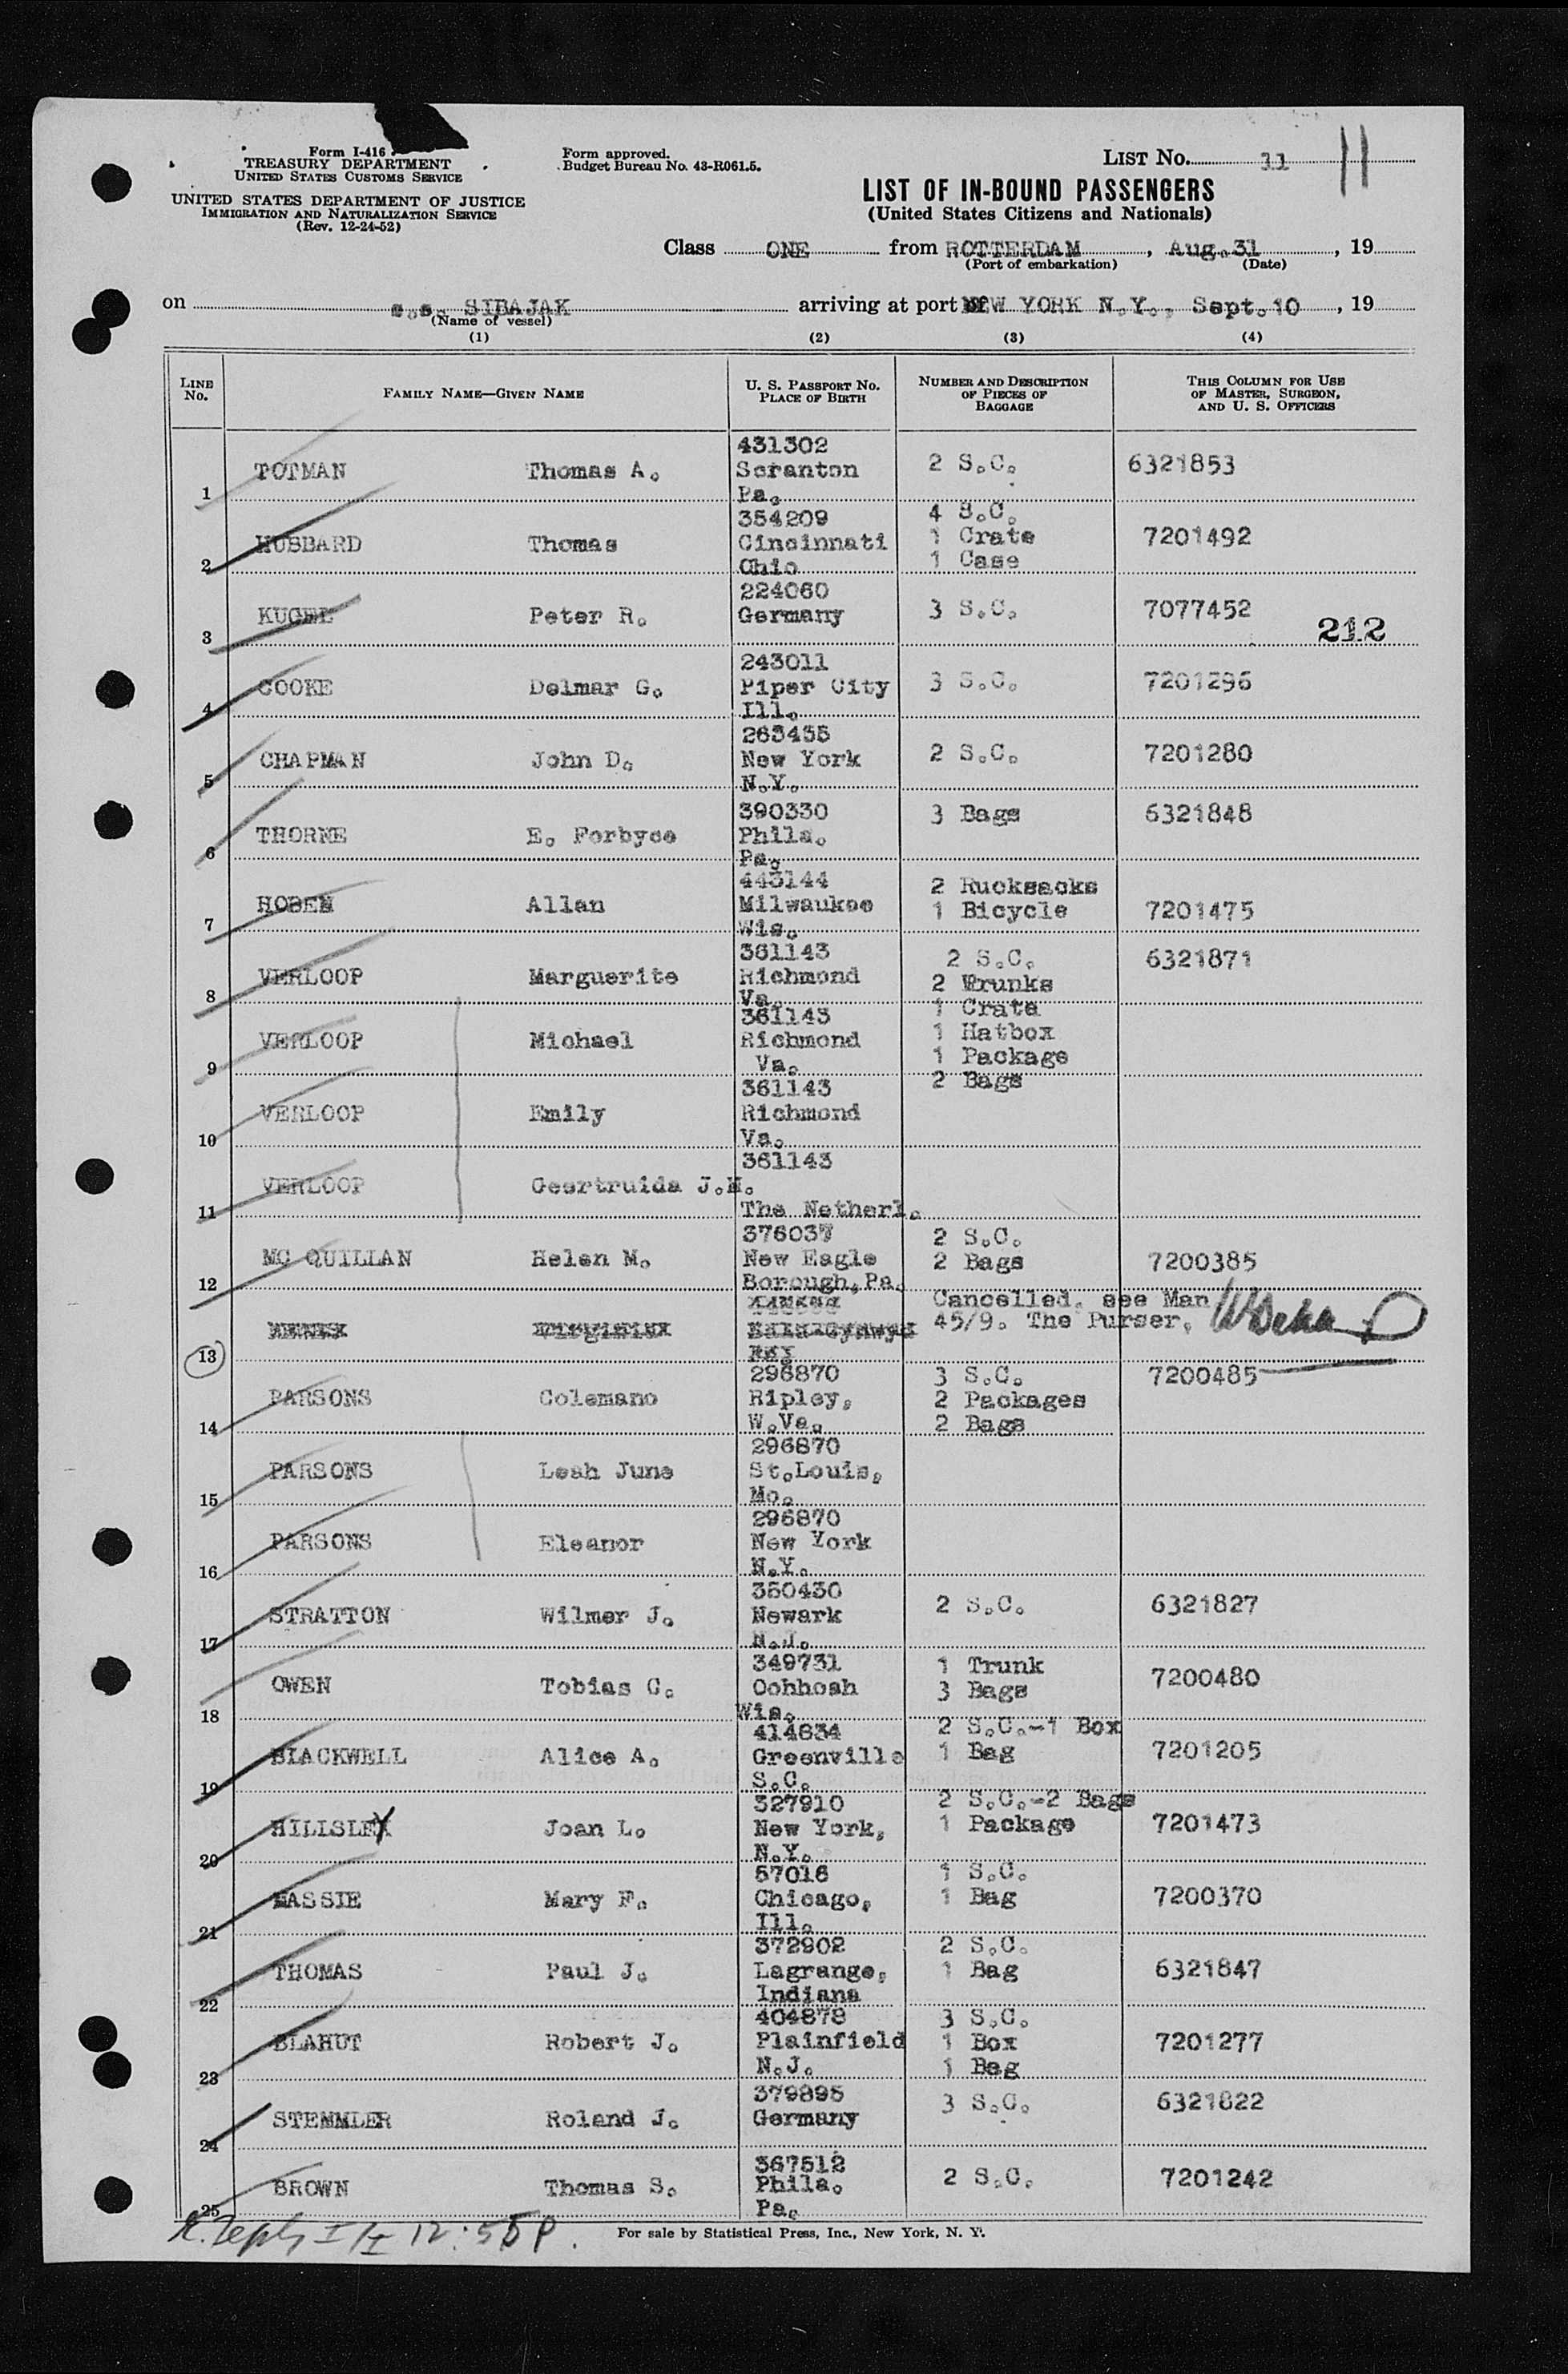 Form I-416
TREASURY DEPARTMENT
UNITED STATES CUSTOMS SERVICE
UNITED STATES DEPARTMENT OF JUSTICE
IMMIGRATION AND NATURALIZATION SERVICE
(Rev. 12-24-52)
Form approved.
Budget Bureau No. 43-R061.5.
LIST No. 11 11
LIST OF IN-BOUND PASSENGERS
(United States Citizens and Nationals)
Class ONE from ROTTERDAM, Aug.31, 19
(Port of embarkation) (Date)
on s.s. SIBAJAK arriving at port of NEW YORK N.Y., Sept.10, 19
(Name of vessel)
(1) (2) (3) (4)
LINE No. FAMILY NAME—GIVEN NAME U. S. PASSPORT NO. PLACE OF BIRTH NUMBER AND DESCRIPTION OF PIECES OF BAGGAGE THIS COLUMN FOR USE OF MASTER, SURGEON, AND U. S. OFFICERS
431302
1 TOTMAN Thomas A. Scranton 2 S.C. 6321853
Pa.
354209 4 S.C.
2 HUSBARD Thomas Cincinnati 1 Crate 7201492
Ohio 1 Case
224060
3 KUGEL Peter R. Germany 3 S.C. 7077452
212
243011
4 COOKE Delmar G. Piper City 3 S.C. 7201296
Ill.
263455
5 CHAPMAN John D. New York 2 S.C. 7201280
N.Y.
390330 3 Bags 6321848
6 THORNE E. Forbyce Phila.
Pa.
443144 2 Rucksacks
7 HOBEN Allan Milwaukee 1 Bicycle 7201475
Wis.
361143 2 S.C. 6321871
8 VERLOOP Marguerite Richmond 2 Wrunks
Va. 1 Crate
361143
9 VERLOOP Michael Richmond 1 Hatbox
Va. 1 Package
361143 2 Bags
10 VERLOOP Emily Richmond
Va.
361143
11 VERLOOP Geertruida J.H.
The Netherl.
376037 2 S.C.
12 MC QUILLAN Helen M. New Eagle 2 Bags 7200385
Borough,Pa.
Cancelled, see Man
13 45/9. The Purser,
296870 3 S.C. 7200485
14 PARSONS Colemano Ripley, 2 Packages
W.Va. 2 Bags
296870
15 PARSONS Leah June St.Louis,
Mo.
296870
16 PARSONS Eleanor New York
N.Y.
350430
17 STRATTON Wilmer J. Newark 2 S.C. 6321827
N.J.
349731 1 Trunk
18 OWEN Tobias C. Oohhosh 3 Bags 7200480
Wis.
414834 2 S.C.-1 Box
19 BLACKWELL Alice A. Greenville 1 Bag 7201205
S.C.
327910 2 S.C.-2 Bags
20 HILLSLEY Joan L. New York, 1 Package 7201473
N.Y.
57016 1 S.C.
21 MASSIE Mary F. Chicago, 1 Bag 7200370
Ill.
372902 2 S.C.
22 THOMAS Paul J. Lagrange, 1 Bag 6321847
Indiana
404878 3 S.C.
23 BLAHUT Robert J. Plainfield 1 Box 7201277
N.J. 1 Bag
379895
24 STEMMLER Roland J. Germany 3 S.C. 6321822
367512
25 BROWN Thomas S. Phila. 2 S.C. 7201242
Pa.
12:55P.
For sale by Statistical Press, Inc., New York, N. Y.